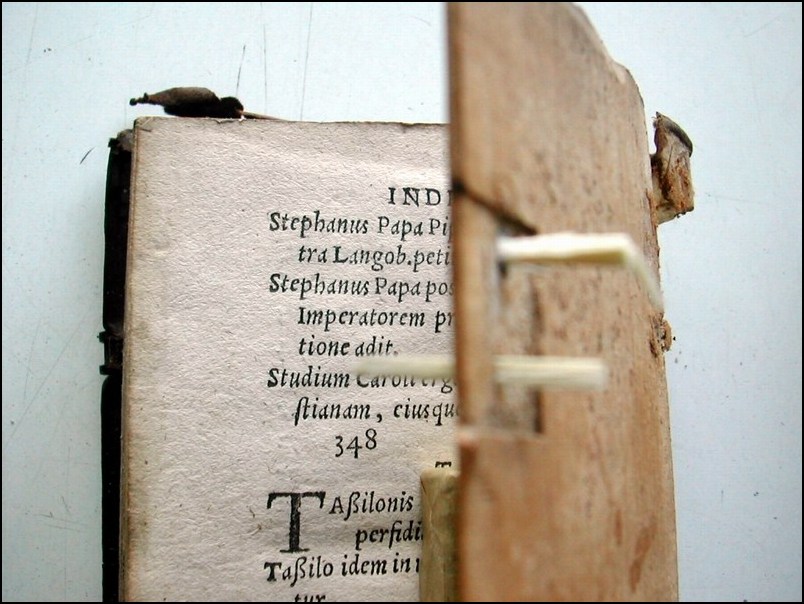 INDE
Stephanus Papa Pi
tra Langob.peti
Stephanus Papa pos
Imperatorem pr
tione adit.
Studium Caroli erga
stianam, eiusque
348
T
TAßilonis
perfidi
Taßilo idem in
tur